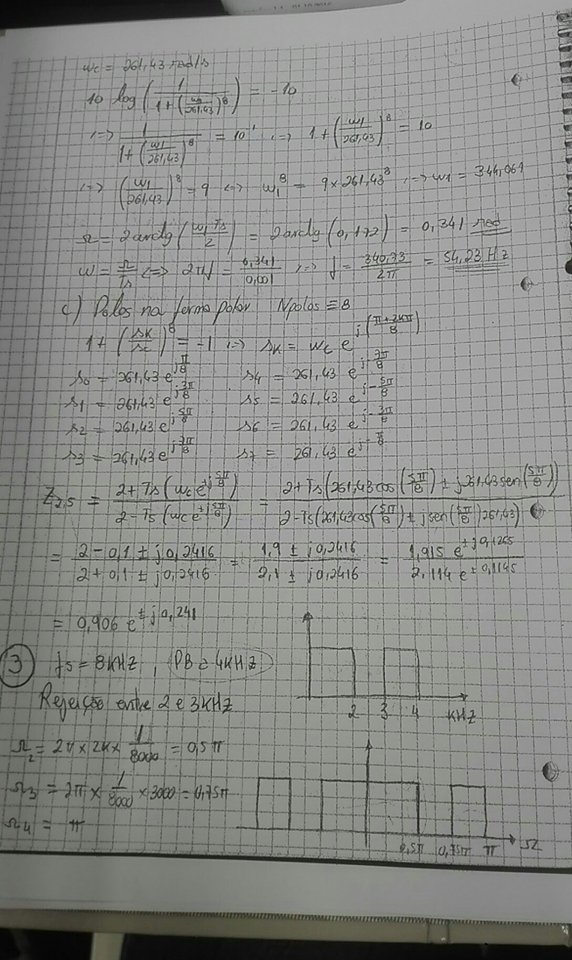 wc = 261,43 rad/s
10 log(1/(1+(w1/261,43)^8)) = -10
(=> 1/(1+(w1/261,43)^8) = 10^-1 (=> 1+(w1/261,43)^8 = 10
(=> (w1/261,43)^8 = 9 (=> w1^8 = 9 x 261,43^8 (=> w1 = 344,061
Ω = 2 arctg(w1 Ts/2) = 2 arctg(0,172) = 0,341 rad
w = Ω/Ts (=> 2πf = 0,341/0,001 (=> f = 340,73/2π = 54,23 Hz
c) Polos na forma polar Npolos = 8
1+(sk/sc)^8 = -1 (=> sk = wc e^j(π+2kπ/8)
s0 = 261,43 e^jπ/8 s4 = 261,43 e^j-7π/8
s1 = 261,43 e^j3π/8 s5 = 261,43 e^j-5π/8
s2 = 261,43 e^j5π/8 s6 = 261,43 e^j-3π/8
s3 = 261,43 e^j7π/8 s7 = 261,43 e^j-π/8
Z2,5 = (2+Ts(wc e^±j5π/8))/(2-Ts(wc e^±j5π/8)) = (2+Ts(261,43 cos(5π/8) ± j261,43 sen(5π/8)))/(2-Ts(261,43 cos(5π/8) ± j sen(5π/8)261,43))
= (2-0,1 ± j0,2416)/(2+0,1 ± j0,2416) = (1,9 ± j0,2416)/(2,1 ± j0,2416) = (1,915 e^±j0,1265)/(2,114 e^±j0,1145)
= 0,906 e^±j0,241
3 fs = 8KHZ , PB = 4KHZ
Rejeição entre 2 e 3KHZ
2 3 4 KHZ
Ω2 = 2π x 2K x 1/8000 = 0,5π
Ω3 = 2π x 1/8000 x 3000 = 0,75π
Ω4 = π
0,5π 0,75π π Ω